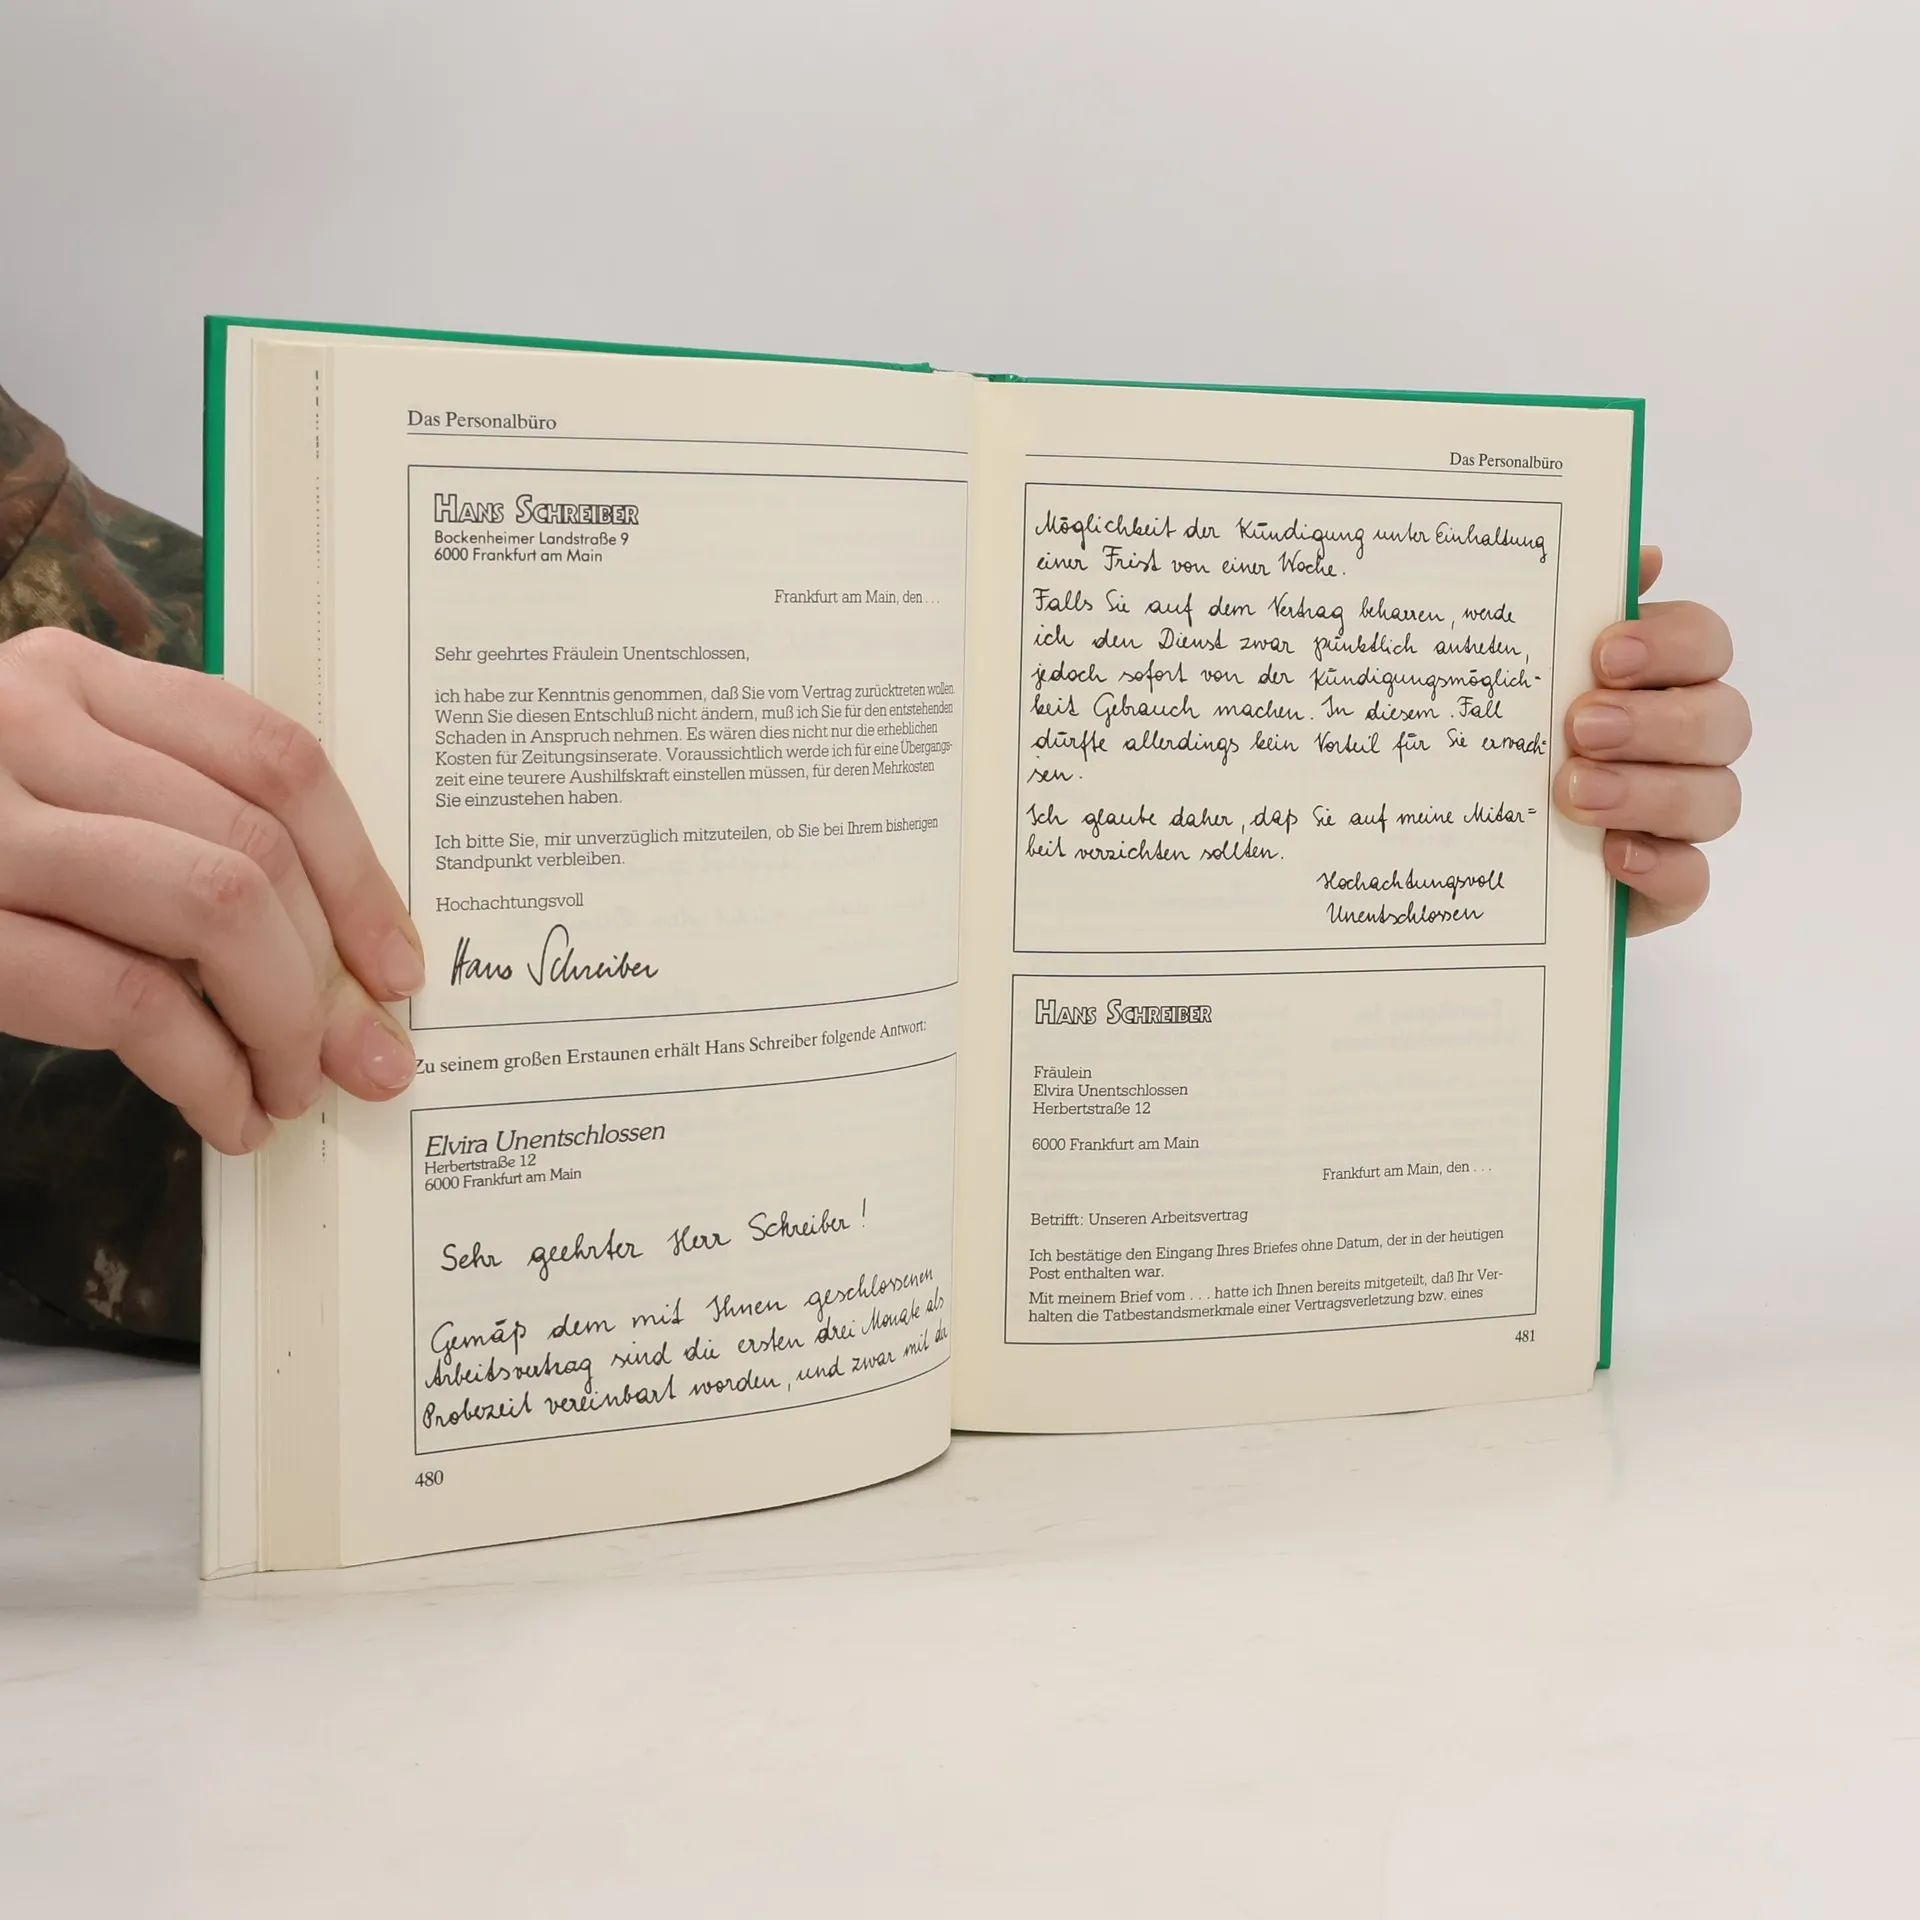 Das Personalbüro
HANS SCHREIBER
Bockenheimer Landstraße 9
6000 Frankfurt am Main
Frankfurt am Main, den . . .
Sehr geehrtes Fräulein Unentschlossen,
ich habe zur Kenntnis genommen, daß Sie vom Vertrag zurücktreten wollen.
Wenn Sie diesen Entschluß nicht ändern, muß ich Sie für den entstehenden
Schaden in Anspruch nehmen. Es wären dies nicht nur die erheblichen
Kosten für Zeitungsinserate. Voraussichtlich werde ich für eine Übergangs-
zeit eine teurere Aushilfskraft einstellen müssen, für deren Mehrkosten
Sie einzustehen haben.
Ich bitte Sie, mir unverzüglich mitzuteilen, ob Sie bei Ihrem bisherigen
Standpunkt verbleiben.
Hochachtungsvoll
Hans Schreiber
Zu seinem großen Erstaunen erhält Hans Schreiber folgende Antwort:
Elvira Unentschlossen
Herbertstraße 12
6000 Frankfurt am Main
Sehr geehrter Herr Schreiber!
Gemäß dem mit Ihnen geschlossenen
Arbeitsvertrag sind die ersten drei Monate als
Probezeit vereinbart worden, und zwar mit der
480
Das Personalbüro
Möglichkeit der Kündigung unter Einhaltung
einer Frist von einer Woche.
Falls Sie auf dem Vertrag beharren, werde
ich den Dienst zwar pünktlich antreten,
jedoch sofort von der Kündigungsmöglich-
keit Gebrauch machen. In diesem Fall
dürfte allerdings kein Vorteil für Sie erwach=
sen.
Ich glaube daher, daß Sie auf meine Mitar=
beit verzichten sollten.
Hochachtungsvoll
Unentschlossen
HANS SCHREIBER
Fräulein
Elvira Unentschlossen
Herbertstraße 12
6000 Frankfurt am Main
Frankfurt am Main, den . . .
Betrifft: Unseren Arbeitsvertrag
Ich bestätige den Eingang Ihres Briefes ohne Datum, der in der heutigen
Post enthalten war.
Mit meinem Brief vom . . . hatte ich Ihnen bereits mitgeteilt, daß Ihr Ver-
halten die Tatbestandsmerkmale einer Vertragsverletzung bzw. eines
481